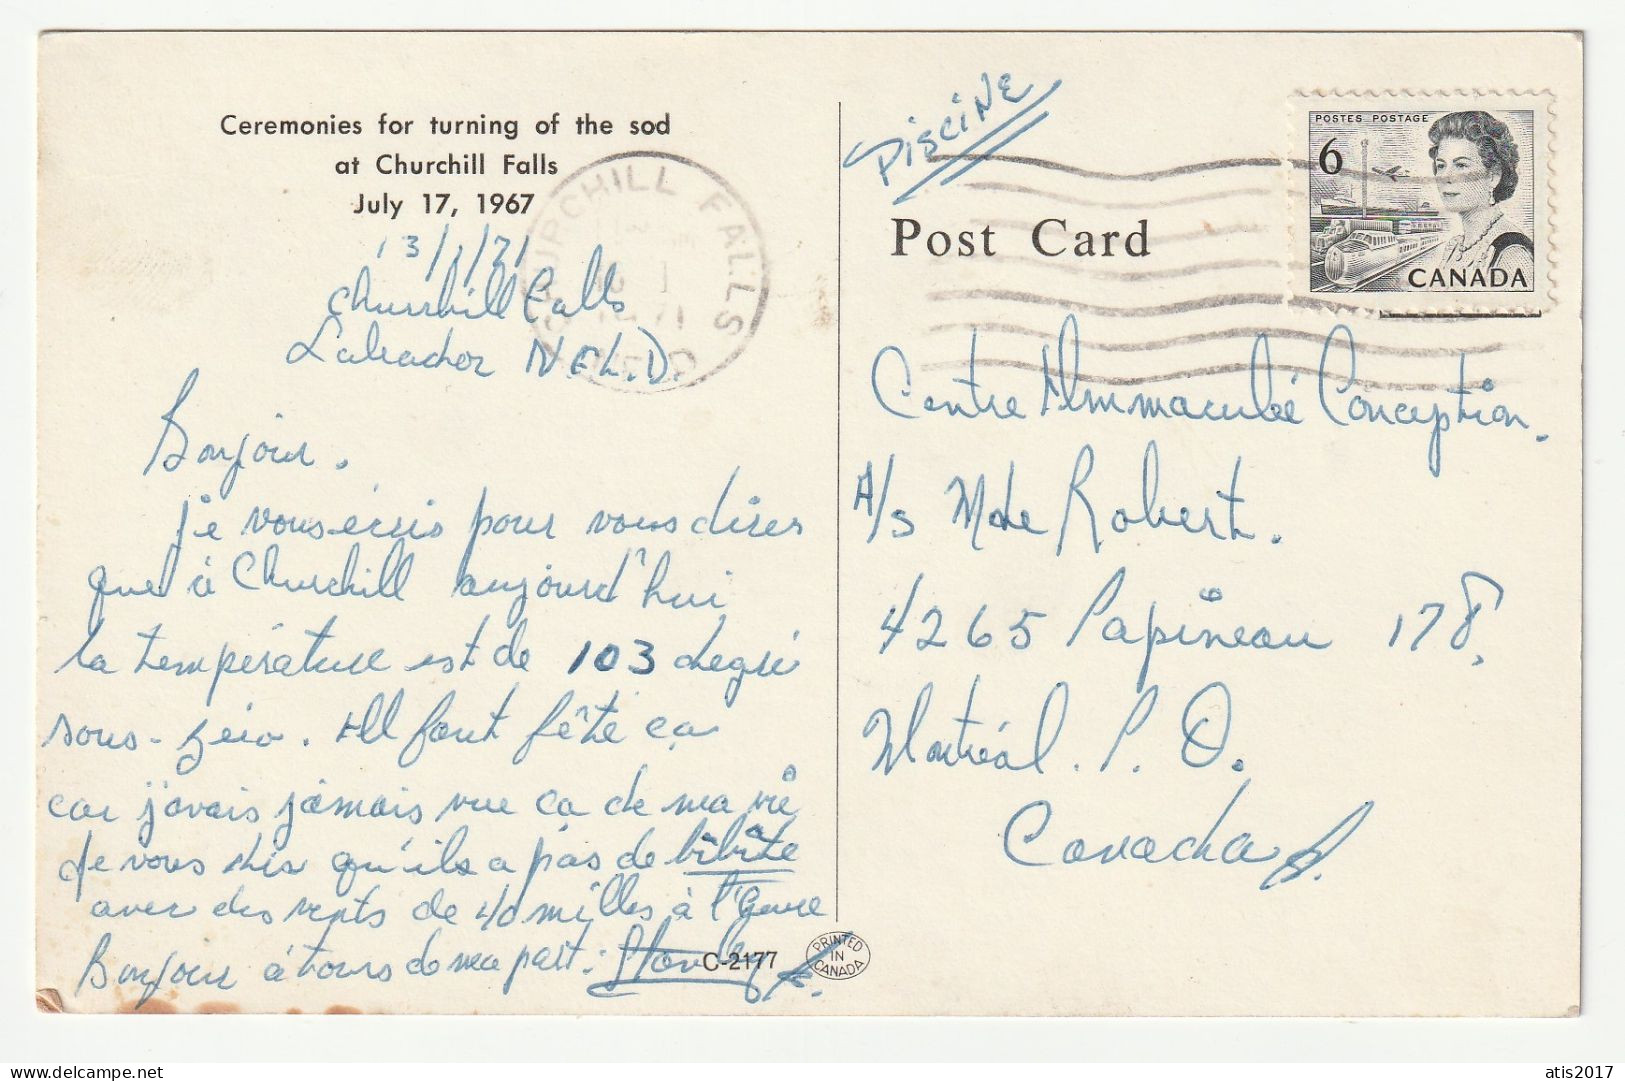 Ceremonies for turning of the sod
at Churchill Falls
July 17, 1967
13/1/71
Churchill Falls
Labrador N.F.L.D.
Bonjour.
je vous écris pour vous dires
que à Churchill aujourd'hui
la température est de 103 degré
sous-zéro. Il faut fêté ça
car j'avais jamais vue ça de ma vie
Je vous dis qu'ils a pas de bibite
avec des vents de 40 milles à l'heure
Bonjour à tous de ma part.
C-2177
PRINTED
IN
CANADA
CHURCHILL FALLS
NFLD
Piscine
Post Card
POSTES POSTAGE
6
CANADA
Centre Immaculée Conception.
A/s Mde Robert.
4265 Papineau 178.
Montréal. P. Q.
Canada
atis2017